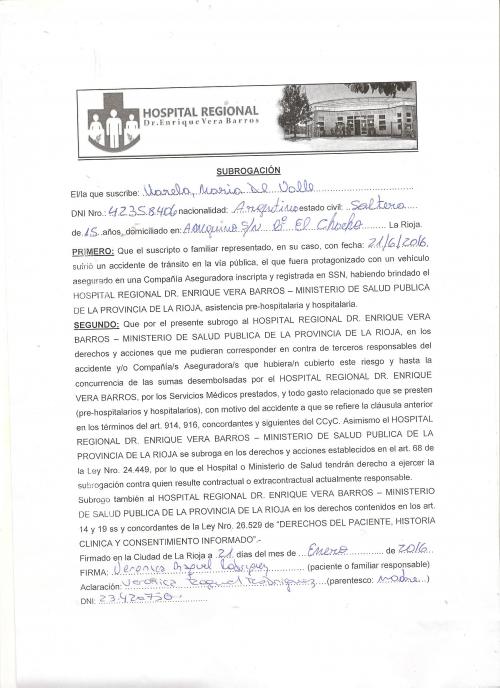 HOSPITAL REGIONAL
Dr. Enrique Vera Barros
SUBROGACIÓN
El/la que suscribe: Varela, Maria Del Valle
DNI Nro.: nacionalidad: Argentino estado civil: Soltera
de 15 años, domiciliado en: S/N Bº El La Rioja.
PRIMERO: Que el suscripto o familiar representado, en su caso, con fecha: 21/6/2016
sufrió un accidente de tránsito en la vía pública, el que fuera protagonizado con un vehículo
asegurado en una Compañía Aseguradora inscripta y registrada en SSN, habiendo brindado el
HOSPITAL REGIONAL DR. ENRIQUE VERA BARROS – MINISTERIO DE SALUD PUBLICA
DE LA PROVINCIA DE LA RIOJA, asistencia pre-hospitalaria y hospitalaria.
SEGUNDO: Que por el presente subrogo al HOSPITAL REGIONAL DR. ENRIQUE VERA
BARROS – MINISTERIO DE SALUD PUBLICA DE LA PROVINCIA DE LA RIOJA, en los
derechos y acciones que me pudieran corresponder en contra de terceros responsables del
accidente y/o Compañía/s Aseguradora/s que hubiera/n cubierto este riesgo y hasta la
concurrencia de las sumas desembolsadas por el HOSPITAL REGIONAL DR. ENRIQUE
VERA BARROS, por los Servicios Médicos prestados, y todo gasto relacionado que se presten
(pre-hospitalarios y hospitalarios), con motivo del accidente a que se refiere la cláusula anterior
en los términos del art. 914, 916, concordantes y siguientes del CCyC. Asimismo el HOSPITAL
REGIONAL DR. ENRIQUE VERA BARROS – MINISTERIO DE SALUD PUBLICA DE LA
PROVINCIA DE LA RIOJA se subroga en los derechos y acciones establecidos en el art. 68 de
la Ley Nro. 24.449, por lo que el Hospital o Ministerio de Salud tendrán derecho a ejercer la
subrogación contra quien resulte contractual o extracontractual actualmente responsable.
Subrogo también al HOSPITAL REGIONAL DR. ENRIQUE VERA BARROS – MINISTERIO
DE SALUD PUBLICA DE LA PROVINCIA DE LA RIOJA en los derechos contenidos en los art.
14 y 19 ss y concordantes de la Ley Nro. 26.529 de "DERECHOS DEL PACIENTE, HISTORIA
CLINICA Y CONSENTIMIENTO INFORMADO".-
Firmado en la Ciudad de La Rioja a 21 días del mes de Enero de 2016
FIRMA: Veronica Raquel Rodriguez (paciente o familiar responsable)
Aclaración: Veronica Raquel Rodriguez (parentesco: Madre)
DNI: 23.420.750